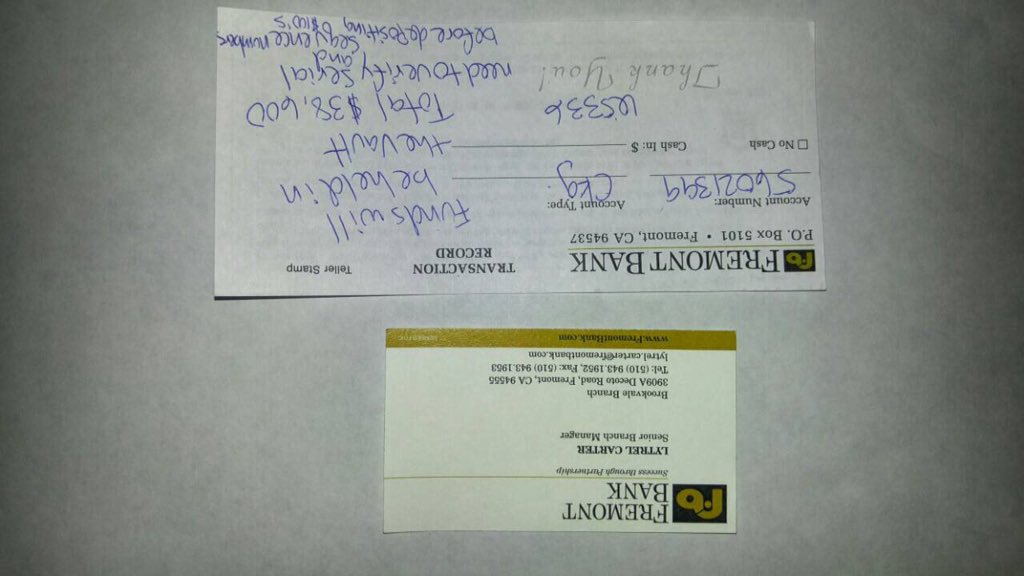 FREMONT
BANK
Success through Partnership
LYTREL CARTER
Senior Branch Manager
Brookvale Branch
3909A Decoto Road, Fremont, CA 94555
Tel: (510) 943.1952, Fax: (510) 943.1953
lytrel.carter@fremontbank.com
www.FremontBank.com MEMBER FDIC
FREMONT BANK
P.O. Box 5101 • Fremont, CA 94537
TRANSACTION
RECORD
Teller Stamp
Account Number: 56021399
Account Type: Ckg.
No Cash Cash In: $
Thank You!
Funds will
be held in
the vault
Total $38,600
need to verify serial
and sequence numbers
before depositing $100's